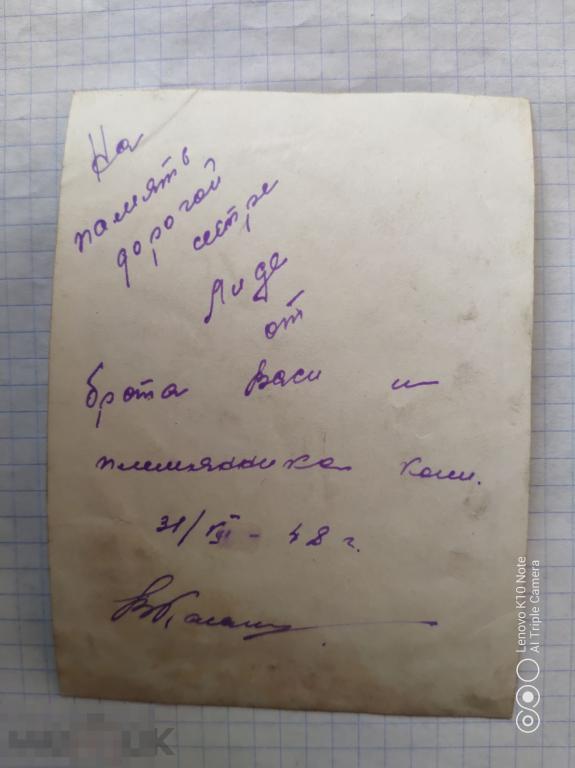 На
память
дорогой
сестре
Лиде
от
брата Васи и
племянника Коли.
31/VIII - 48 г.
Lenovo K10 Note
AI Triple Camera